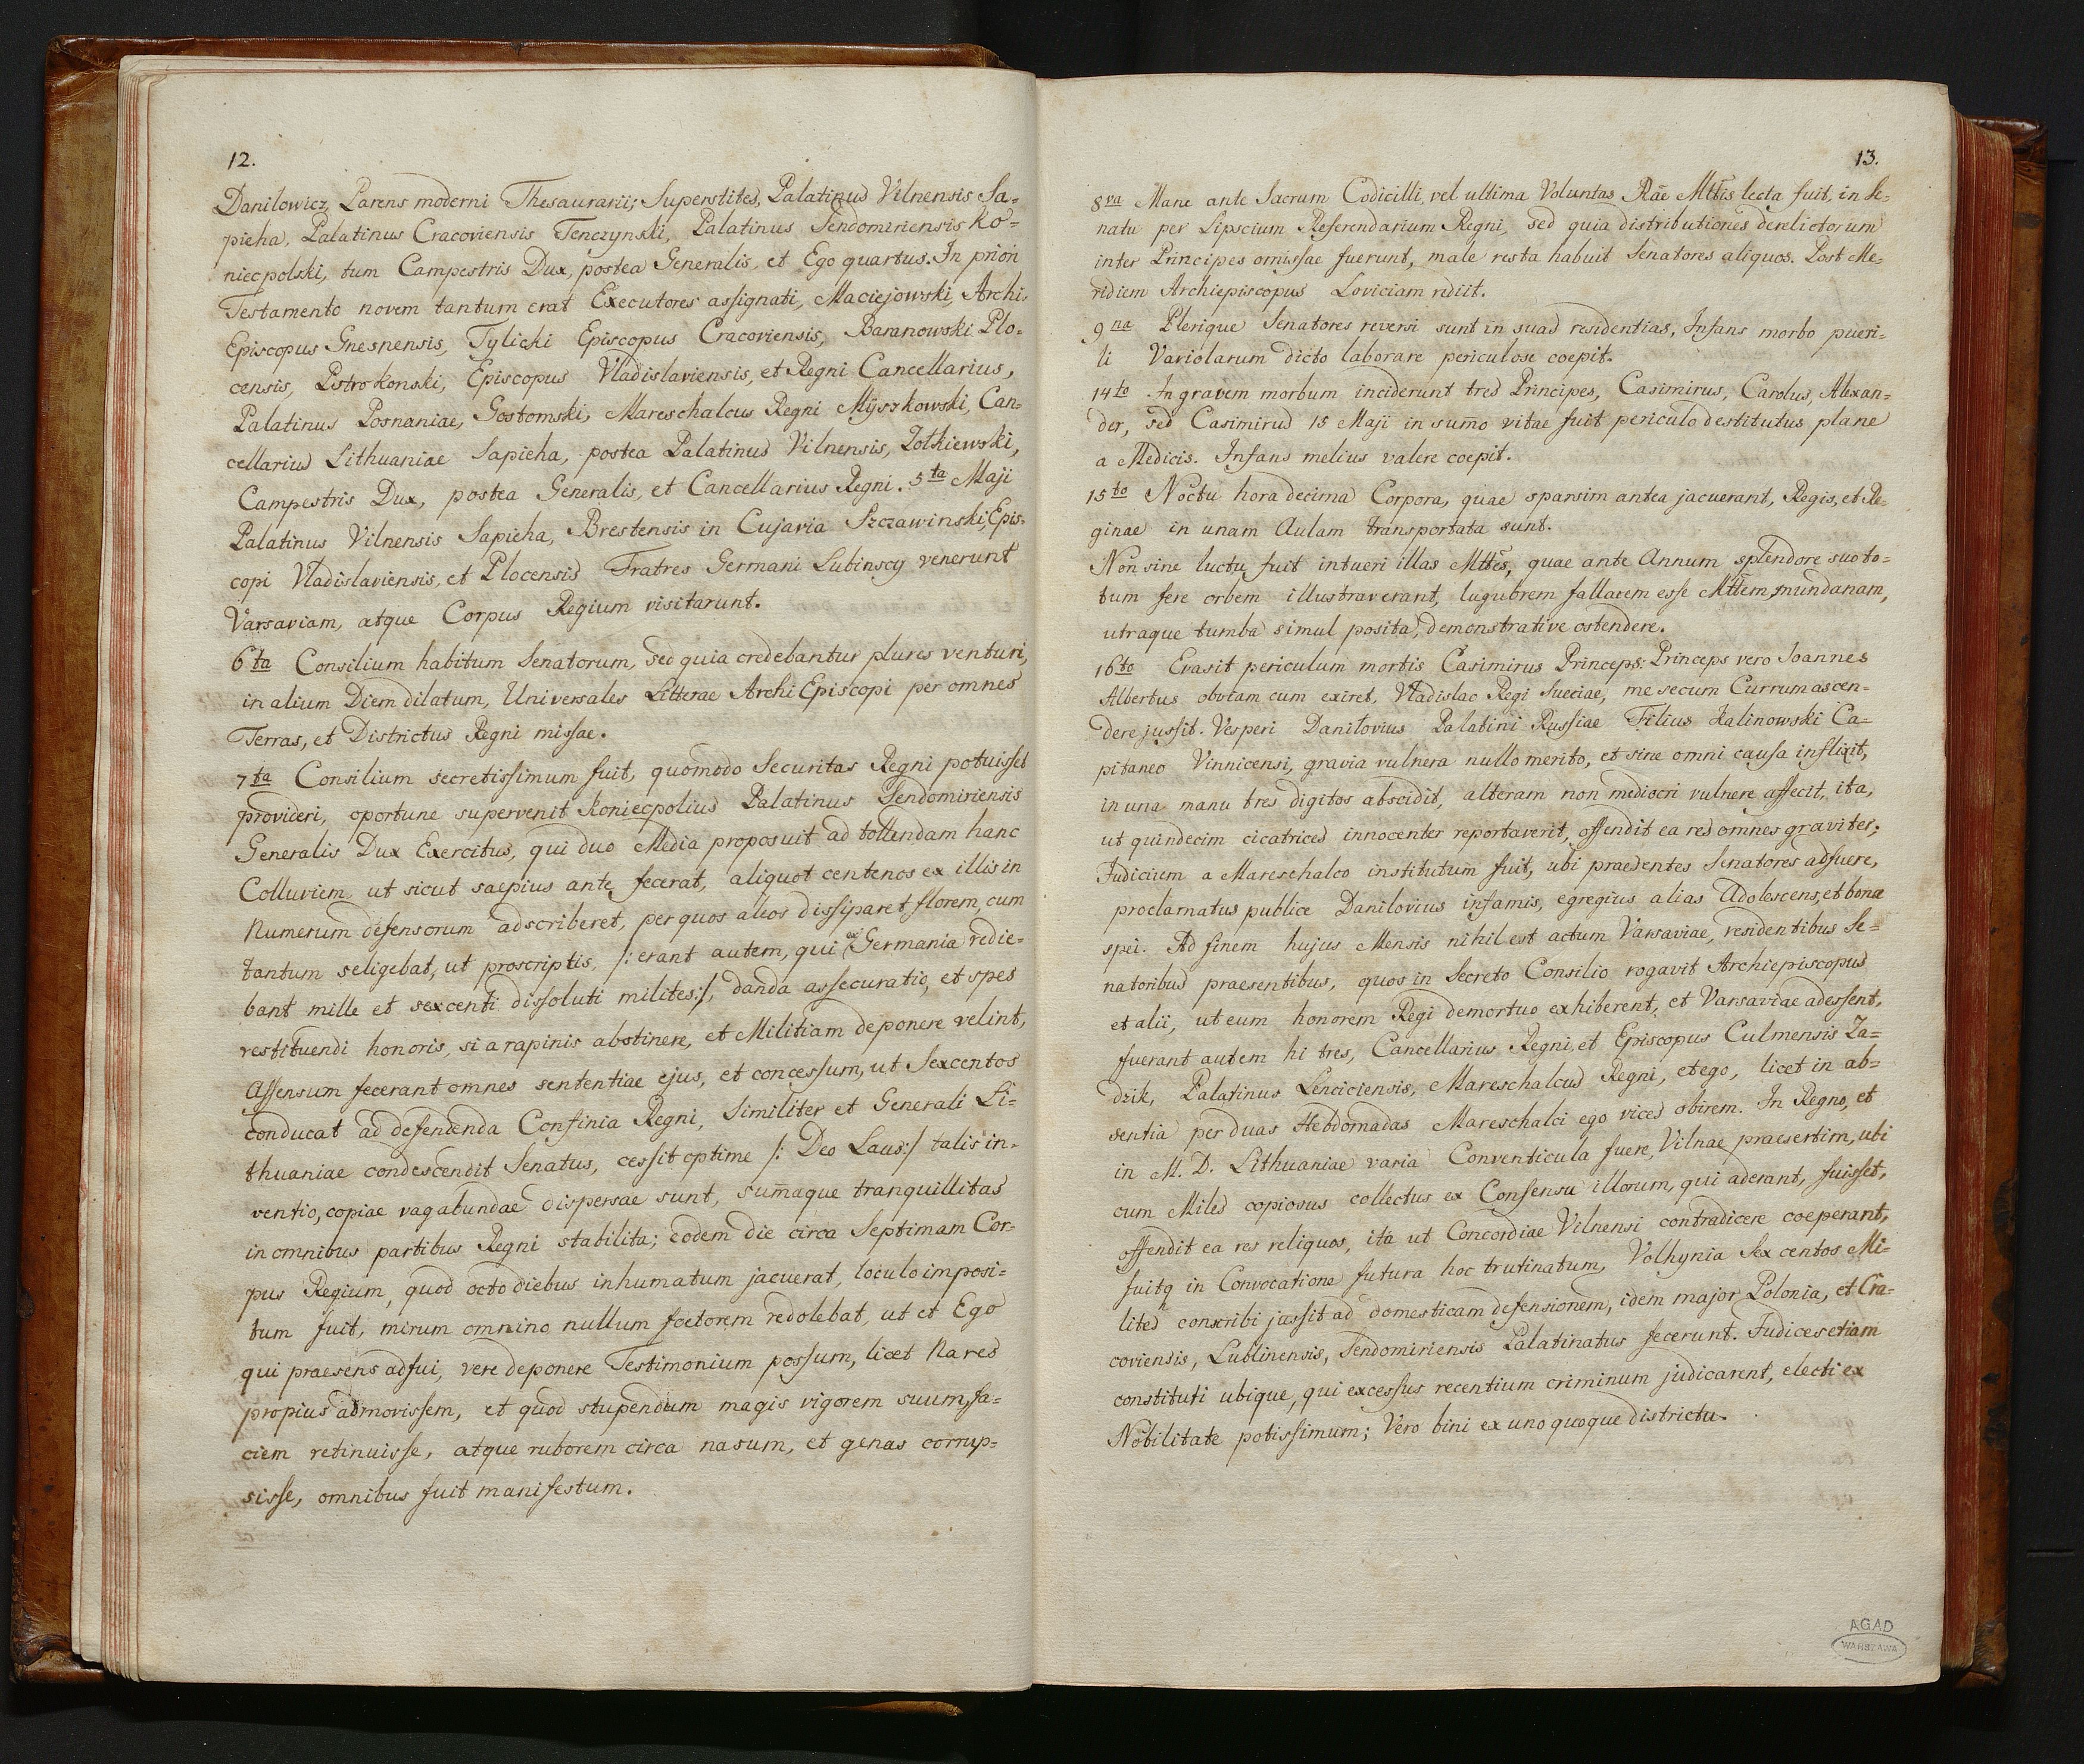 12.
Danilowicz, Parens moderni Thesaurarii; Superstites, Palatinus Vilnensis Sa-
pieha, Palatinus Cracoviensis Tenczynski, Palatinus Sendomiriensis Ko-
niecpolski, tum Campestris Dux, postea Generalis, et Ego quartus. In priori
Testamento novem tantum erat Executores assignati, Maciejowski, Archi-
Episcopus Gnesnensis, Tylicki Episcopus Cracoviensis, Baranowski Plo-
censis, Pstrokonski, Episcopus Vladislaviensis, et Regni Cancellarius,
Palatinus Posnaniae, Gostomski, Mareschalcus Regni Myszkowski, Can-
cellarius Lithuaniae Sapieha, postea Palatinus Vilnensis, Zolkiewski,
Campestris Dux, postea Generalis, et Cancellarius Regni. 5ta Maji
Palatinus Vilnensis Sapieha, Brestensis in Cujavia Szczawinski, Epis-
copi Vladislaviensis, et Plocensis Fratres Germani Lubinscy venerunt
Varsaviam, atque Corpus Regium visitarunt.
6ta Consilium habitum Senatorum, sed quia credebantur plures venturi,
in alium Diem dilatum, Universales Litterae ArchiEpiscopi per omnes
Terras, et Districtus Regni missae.
7ta Consilium secretissimum fuit, quomodo Securitas Regni potuisset
provideri, oportune supervenit Koniecpolius Palatinus Sendomiriensis
Generalis Dux Exercitus, qui duo Media proposuit ad tollendam hanc
Colluviem, ut sicut saepius ante fecerat, aliquot centenos ex illis in
Numerum defensorum adscriberet, per quos alios dissiparet florem, cum
tantum seligebat, ut proscriptis, /: erant autem, qui ex Germania redie-
bant mille et sexcenti dissoluti milites:/, danda assecuratio, et spes
restituendi honoris, si a rapinis abstinere, et Militiam deponere velint,
Assensum fecerant omnes sententiae ejus, et concessum, ut Sexcentos
conducat ad defendenda Confinia Regni, Similiter et Generali Li-
thuaniae condescendit Senatus, cessit optime /: Deo Laus:/ talis in-
ventio, copiae vagabundae dispersae sunt, sum̄aque tranquillitas
in omnibus partibus Regni stabilita; eodem die circa Septimam Cor-
pus Regium, quod octo diebus inhumatum jacuerat, loculo imposi-
tum fuit, mirum omnino nullum foetorem redolebat, ut et Ego
qui praesens adfui, vere deponere Testimonium possum, licet Nares
propius admovissem, et quod stupendum magis vigorem suum, fa-
ciem retinuisse, atque ruborem circa nasum, et genas corrup-
sisse, omnibus fuit manifestum.
13.
8va Mane ante Sacrum Codicilli, vel ultima Voluntas Rae Mttis lecta fuit, in Se-
natu per Lipscium Referendarium Regni, sed quia distributiones derelictorum
inter Principes omissae fuerunt, male resta habuit Senatores aliquos. Post Me-
ridiem Archiepiscopus Loviciam rediit.
9na Plerique Senatores reversi sunt in suas residentias, Infans morbo pueri-
li Variolarum dicto laborare periculose coepit.
14to In gravem morbum inciderunt tres Principes, Casimirus, Carolus, Alexan-
der, sed Casimirus 15 Maji in sum̄o vitae fuit periculo destitutus plane
a Medicis. Infans melius valere coepit.
15to Noctu hora decima Corpora, quae sparsim antea jacuerant, Regis, et Re-
ginae in unam Aulam transportata sunt.
Non sine luctu fuit intueri illas Mttes, quae ante Annum splendore suo to-
tum fere orbem illustraverant, lugubrem fallacem esse Mttem mundanam,
utraque tumba simul posita, demonstrative ostendere.
16to Evasit periculum mortis Casimirus Princeps: Princeps vero Joannes
Albertus obviam cum exiret, Vladislao Regi Sueciae, me secum Currum ascen-
dere jussit. Vesperi Danilovius Palatini Russiae Filius Kalinowski Ca-
pitaneo Vinnicensi, gravia vulnera nullo merito, et sine omni causa inflixit,
in una manu tres digitos abscidit, alteram non mediocri vulnere affecit, ita,
ut quindecim cicatrices innocenter reportaverit, offendit ea res omnes graviter;
Judicium a Mareschalco institutum fuit, ubi praesentes Senatores adfuere,
proclamatus publice Danilovius infamis, egregius alias Adolescens, et bonae
spei. Ad finem hujus Mensis nihil est actum Varsaviae, residentibus Se-
natoribus praesentibus, quos in Secreto Consilio rogavit Archiepiscopus
et alii, ut eum honorem Regi demortuo exhiberent, et Varsaviae adessent,
fuerant autem hi tres, Cancellarius Regni, et Episcopus Culmensis Za-
dzik, Palatinus Lenciciensis, Mareschalcus Regni, et ego, licet in ab-
sentia per duas Hebdomadas Mareschalci ego vices obirem. In Regno, et
in M. D. Lithuaniae varia Conventicula fuere, Vilnae praesertim, ubi
cum Miles copiosus collectus ex Consensu illorum, qui aderant, fuisset,
offendit ea res reliquos, ita ut Concordiae Vilnensi contradicere coeperant,
fuitq in Convocatione futura hoc trutinatum, Volhynia Sex centos Mi-
lites conscribi jussit ad domesticam defensionem, idem major Polonia, et Cra-
coviensis, Lublinensis, Sendomiriensis Palatinatus fecerunt. Judices etiam
constituti ubique, qui excessus recentium criminum judicarent, electi ex
Nobilitate potissimum; Vero bini ex uno quoque districtu.
AGAD
WARSZAWA